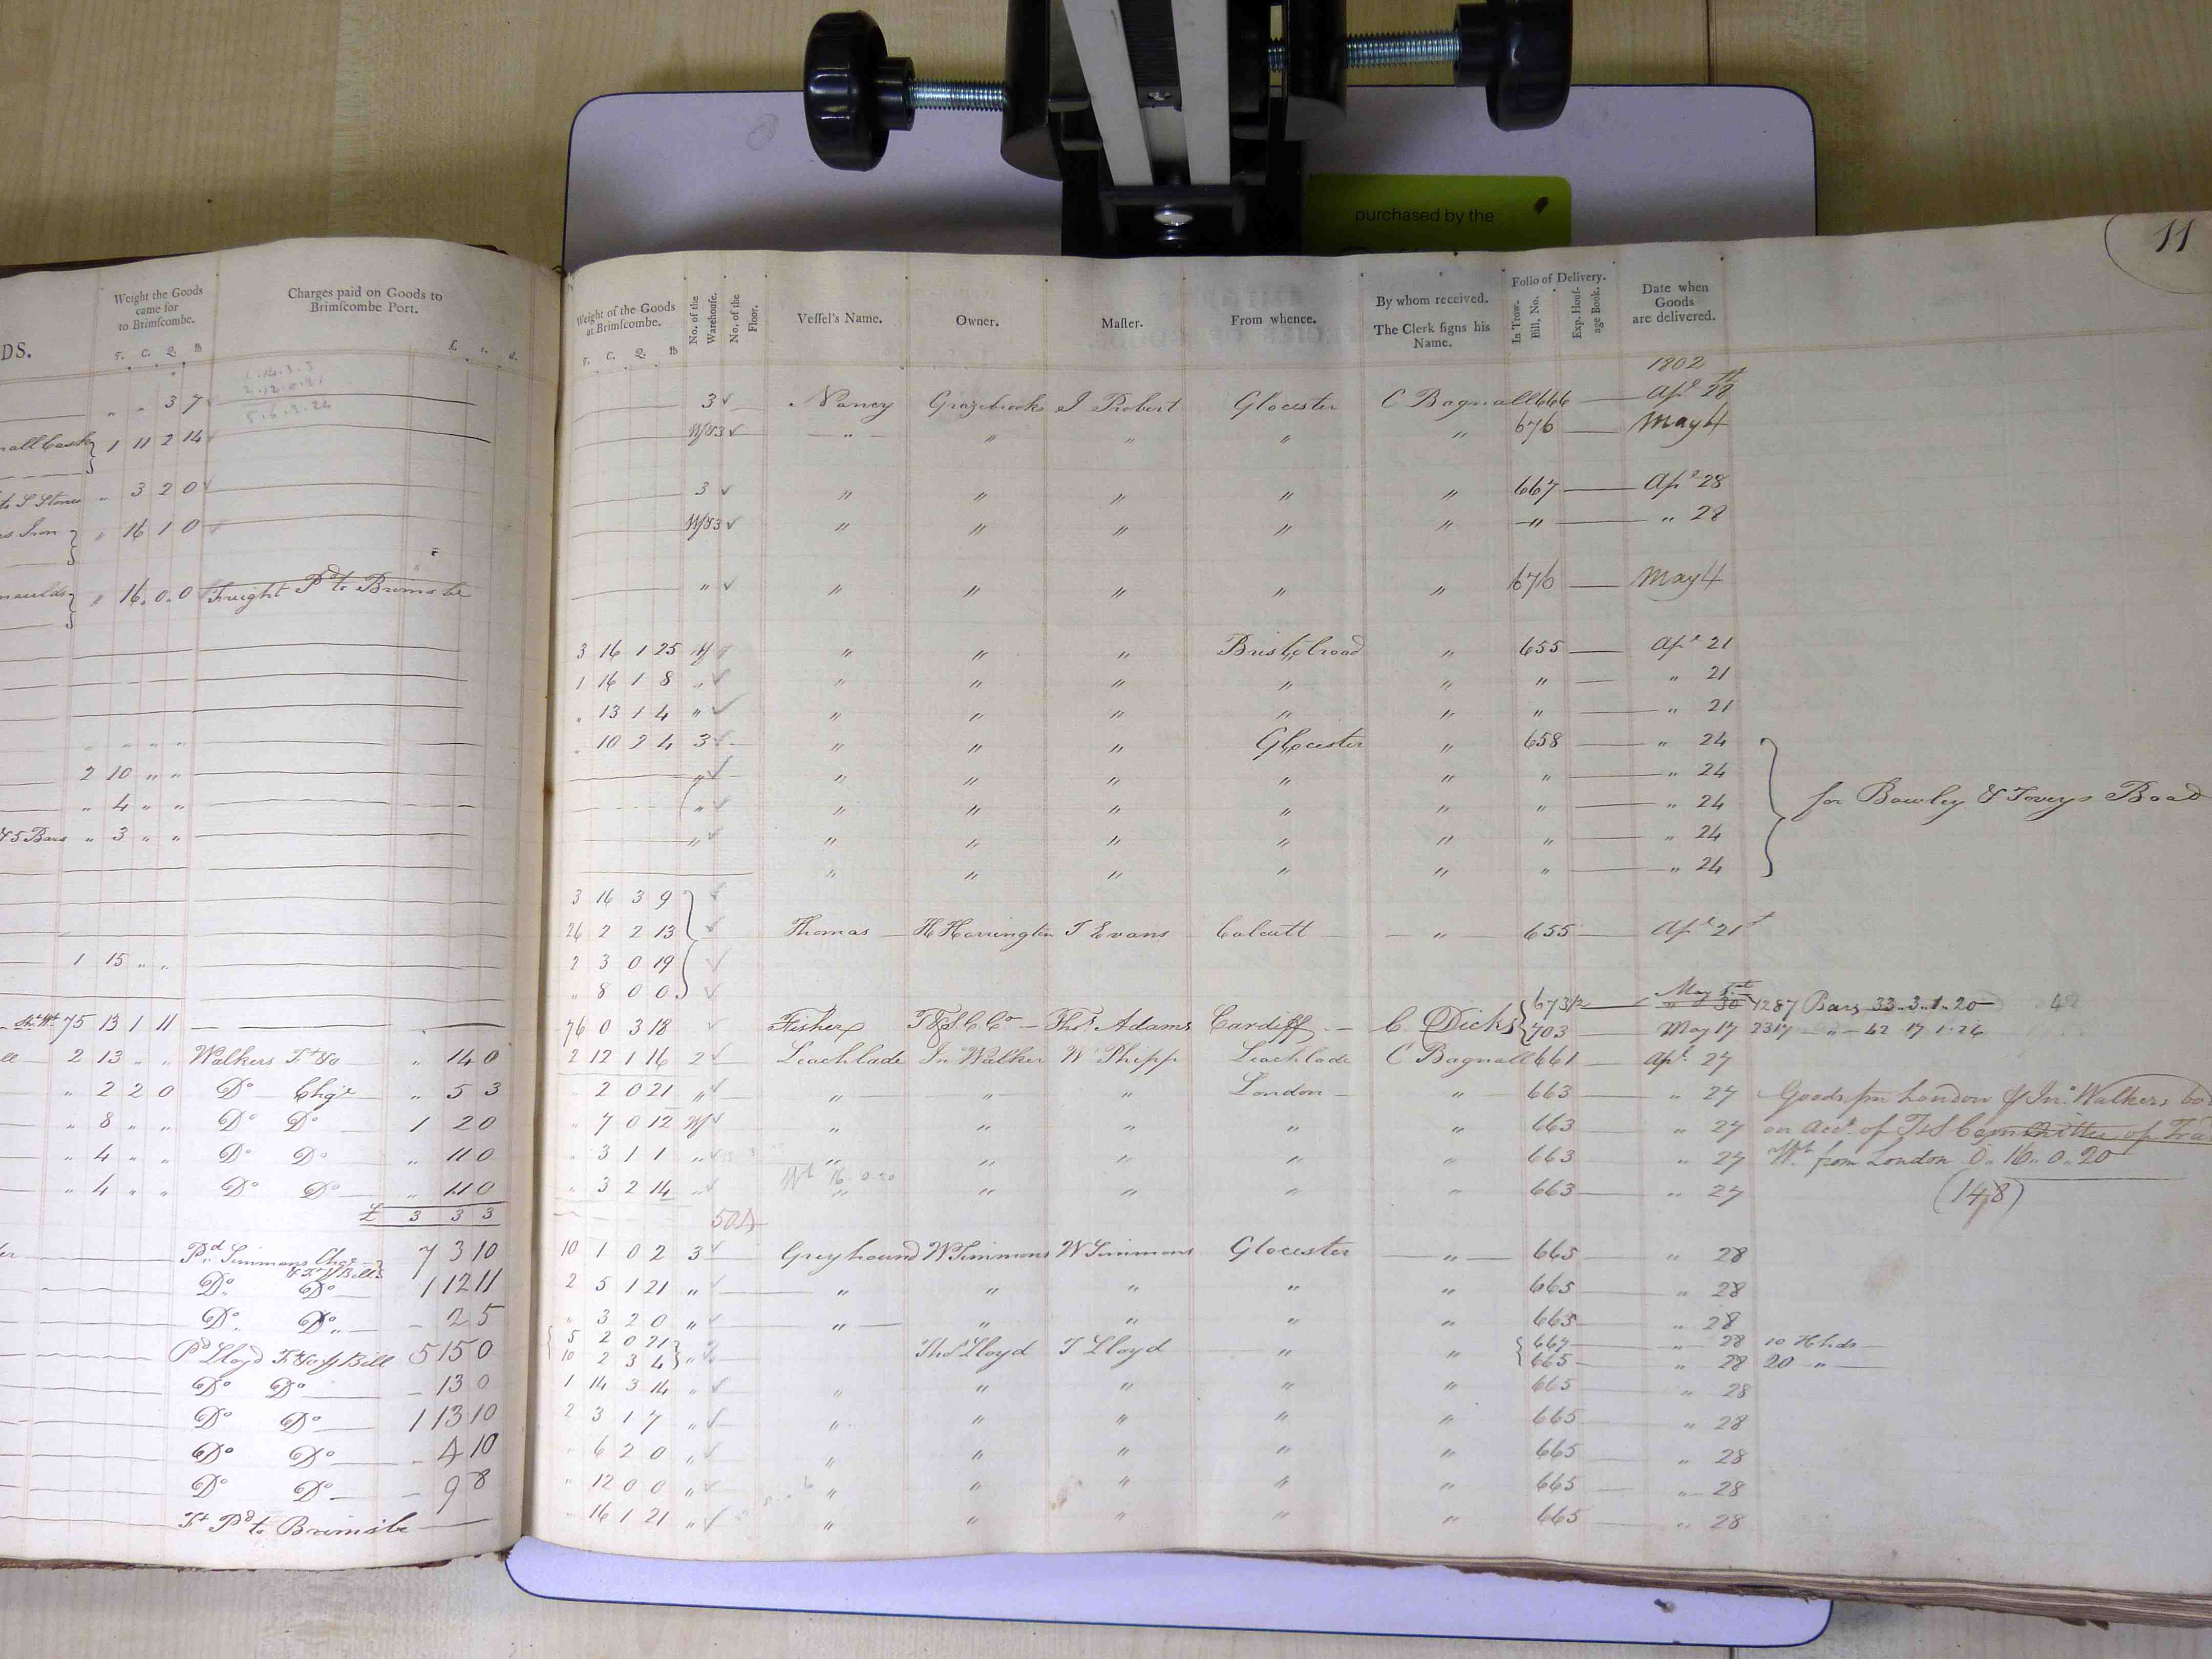 purchased by the
11
DS.
Weight the Goods came for to Brimſcombe.
T. C. Q. lb
Charges paid on Goods to Brimſcombe Port.
£. s. d.
Weight of the Goods at Brimſcombe.
T. C. Q. lb
No. of the Warehouse.
No. of the Floor.
Veſſel's Name.
Owner.
Maſter.
From whence.
By whom received.
The Clerk ſigns his Name.
Folio of Delivery.
In Trow-Bill, No.
Exp. Houſ-age Book.
Date when Goods are delivered.
1802
" - 3 7
3 Nancy Grazebrooks J Probert Glocester C Bagnall 666 Apl 28
all Cask 1 11 2 14
" " " " " 676 May 4
& S Stones " 3 2 0
3 " " " " " 667 Apl 28
s Iron " 16 1 0
" " " " " " " 28
moulds " 16. 0. 0 Freight Pd to Brimsbe
" " " " " " 676 May 4
3 16 1 25 " " " Bristol road " 655 Apl 21
1 16 1 8 " " " " " " " " 21
" 13 1 4 " " " " " " " " 21
" 10 2 4 3 " " " Glocester " 658 " 24
2 10 " "
" " " " " " " " 24
" 4 " "
" " " " " " " " 24
for Bowley & Toveys Boad
& 5 Bars " 3 " "
" " " " " " " " 24
" " " " " " " 24
3 16 3 9
26 2 2 13 Thomas H Harrington T Evans Calcutt " 655 Apl 21st
1 15 " "
2 3 0 19
" 8 0 0
75 13 1 11
76 0 3 18 Fisher T&S.C.Co Thos Adams Cardiff C. Dicks
673/2 May 1st " 30 1287 Bars 33..3..1..20
703 May 17 2317 " 42 17.1.26
2 13 " " Walkers Ft &co " 14 0
2 12 1 16 2 Leachlade Jn Walker W Phipp Leachlade C Bagnall 661 Apl 27
" 2 2 0 Do Chge " 5 3
" 2 0 21 " " " " London " 663 " 27 Goods fm London
" 8 " " Do Do 1 2 0
" 7 0 12 Wf " " " " " 663 " 27 on Acct of T&S Committee of
" 4 " " Do Do " 11 0
" 3 1 1 " " " " " " 663 " 27 Wt from London 0..16..0..20
" 4 " " Do Do " 11 0
Wt 16 0.20
" 3 2 14 " " " " " " 663 " 27
(148)
£ 3 3 3
Pd Simmons Chas 7 3 10
& Ft Bills
10 1 0 2 3 Greyhound W Simmons W Simmons Glocester " 665 " 28
Do Do 1 12 11
2 5 1 21 " " " " " " 665 " 28
Do Do - 2 5
" 3 2 0 " " " " " " 665 " 28
Pd Lloyd Ft &c Bill 5 15 0
5 2 0 21 667 " 28 10 Hhds
10 2 3 4 " Thos Lloyd T Lloyd " " 665 " 28 20 "
Do Do - 13 0
1 14 3 14 " " " " " " 665 " 28
Do Do 1 13 10
2 3 1 7 " " " " " " 665 " 28
Do Do - 4 10
" 6 2 0 " " " " " " 665 " 28
Do Do - 9 8
" 12 0 0 " " " " " " 665 " 28
Ft Pd to Brimsbe
" 16 1 21 " " " " " " 665 " 28